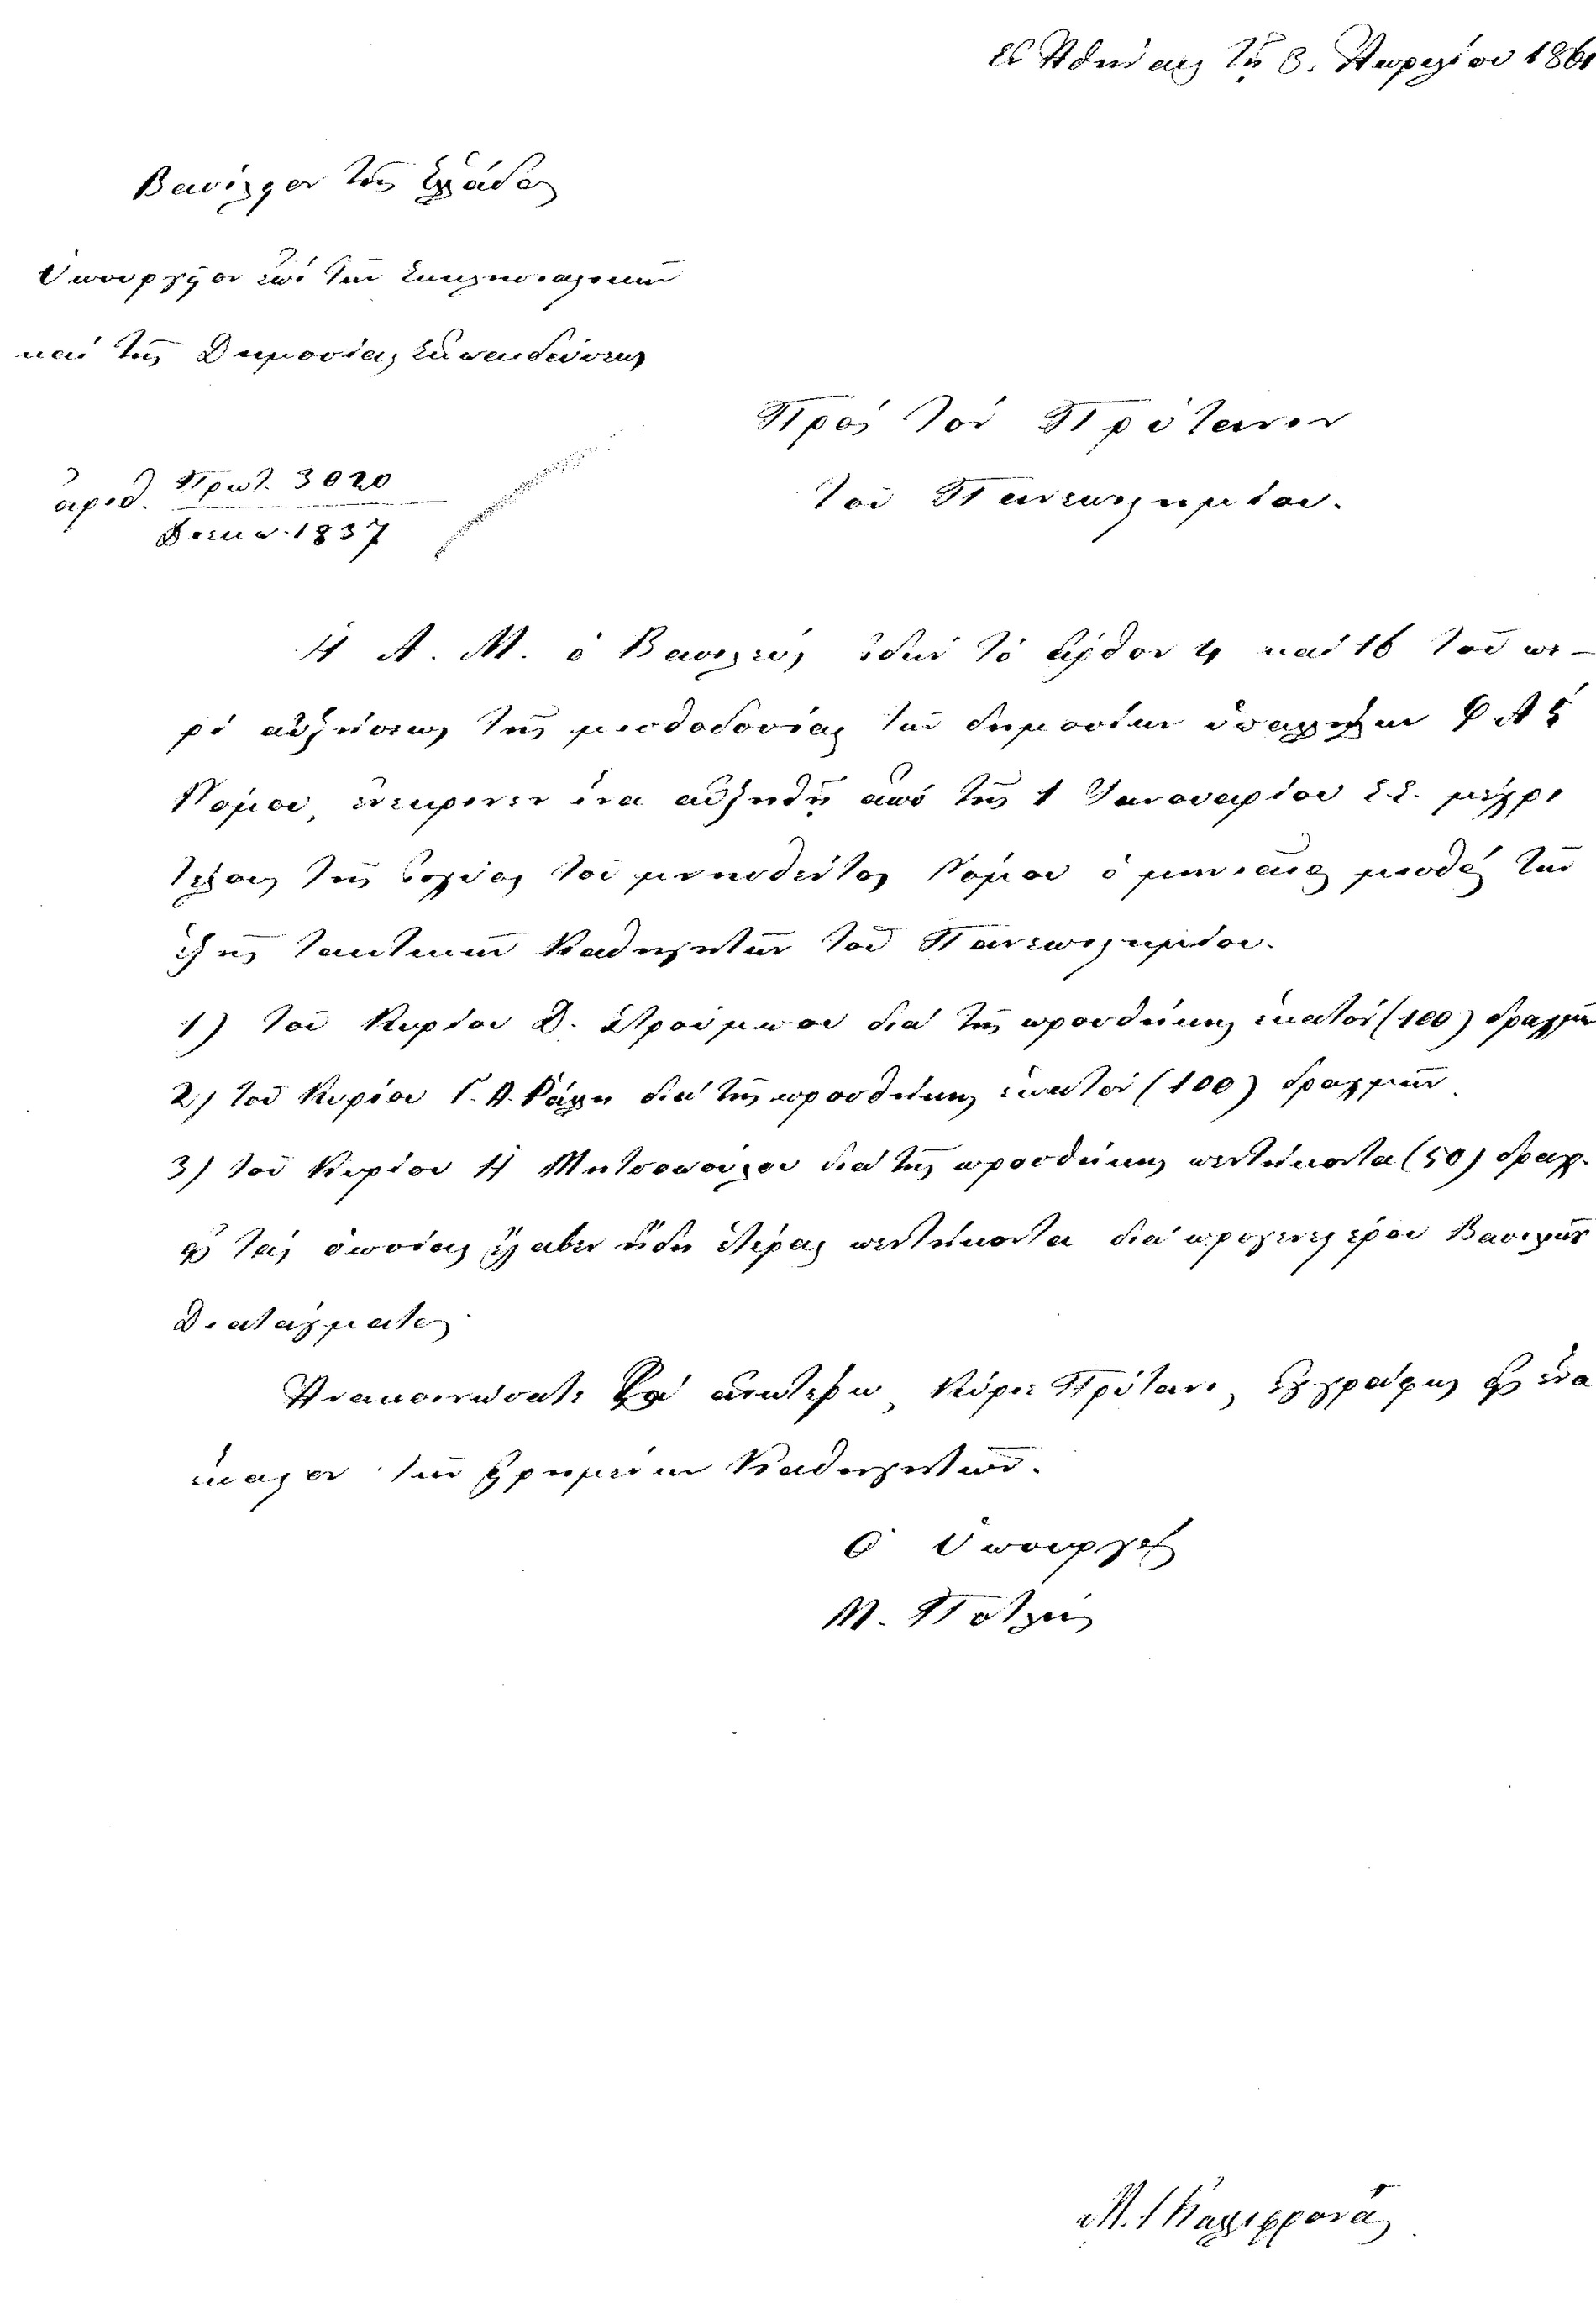 Ἐν Ἀθήναις τῇ 3. Ἀπριλίου 1861
Βασίλειον τῆς Ἑλλάδος
Ὑπουργεῖον ἐπὶ τῶν Ἐκκλησιαστικῶν
καὶ τῆς Δημοσίας Ἐκπαιδεύσεως
Πρὸς τὸν Πρύτανιν
τοῦ Πανεπιστημίου.
ἀριθ. Πρωτ. 3020
Διεκπ. 1837
Ἡ Α. Μ. ὁ Βασιλεὺς ἰδὼν τὸ ἄρθρον 4 καὶ 16 τοῦ πε-
ρὶ αὐξήσεως τῆς μισθοδοσίας τῶν δημοσίων ὑπαλλήλων ΦΛϚ
Νόμου, ἐνέκρινεν ἵνα αὐξηθῇ ἀπὸ τῆς 1 Ἰανουαρίου ἐ.ἔ. μέχρι
τέλους τῆς ἰσχύος τοῦ μνησθέντος Νόμου ὁ μηνιαῖος μισθὸς τῶν
ἑξῆς τακτικῶν Καθηγητῶν τοῦ Πανεπιστημίου.
1) τοῦ Κυρίου Δ. Στρούμπου διὰ τῆς προσθήκης ἑκατὸν (100) δραχμῶν
2) τοῦ Κυρίου Γ. Α. Ράλλη διὰ τῆς προσθήκης ἑκατὸν (100) δραχμῶν
3) τοῦ Κυρίου Ἡ Μητσοπούλου διὰ τῆς προσθήκης πεντήκοντα (50) δραχ.
εἰς τὰς ὁποίας ἔλαβεν ἤδη ἑτέρας πεντήκοντα διὰ προγενεστέρου Βασιλικοῦ
Διατάγματος.
Ἀνακοινώσατε τὰ ἀνωτέρω, Κύριε Πρύτανι, ἐγγράφως εἰς ἕνα
ἕκαστον τῶν εἰρημένων Καθηγητῶν.
Ὁ Ὑπουργὸς
Μ. Ποτλῆς
Μ. Καλλιφρονᾶς